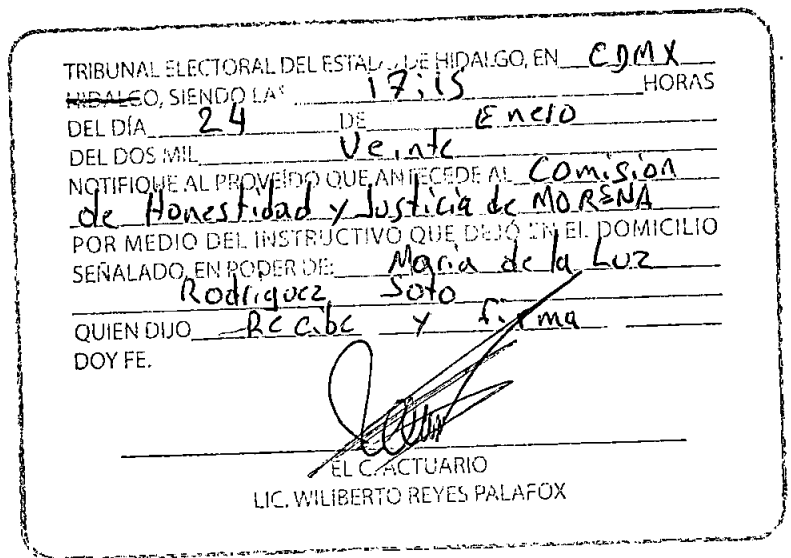 TRIBUNAL ELECTORAL DEL ESTADO DE HIDALGO, EN CDMX
HIDALGO, SIENDO LAS 17:15 HORAS
DEL DÍA 24 DE Enero
DEL DOS MIL Veinte
NOTIFIQUE AL PROVEÍDO QUE ANTECEDE AL Comisión
de Honestidad y Justicia de MORENA
POR MEDIO DEL INSTRUCTIVO QUE DEJÓ EN EL DOMICILIO
SEÑALADO, EN PODER DE: Maria de la Luz
Rodriguez Soto
QUIEN DIJO Recibe y firma
DOY FE.
EL C. ACTUARIO
LIC. WILIBERTO REYES PALAFOX